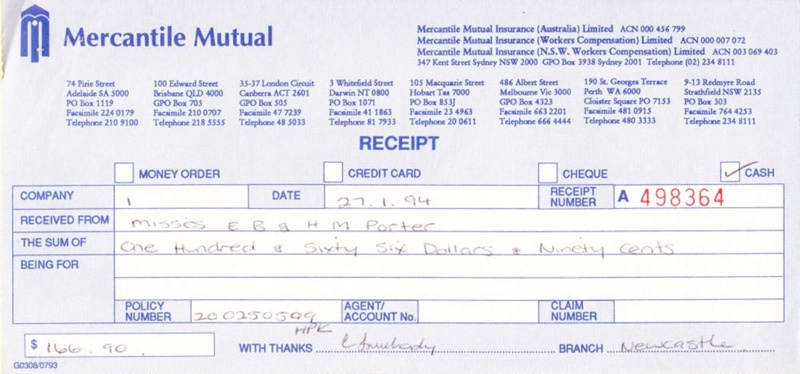 Mercantile Mutual
Mercantile Mutual Insurance (Australia) Limited ACN 000 456 799
Mercantile Mutual Insurance (Workers Compensation) Limited ACN 000 007 072
Mercantile Mutual Insurance (N.S.W. Workers Compensation) Limited ACN 003 069 403
347 Kent Street Sydney NSW 2000 GPO Box 3938 Sydney 2001 Telephone (02) 234 8111
74 Pirie Street 100 Edward Street 35-37 London Circuit 3 Whitefield Street 105 Macquarie Street 486 Albert Street 190 St. Georges Terrace 9-13 Redmyre Road
Adelaide SA 5000 Brisbane QLD 4000 Canberra ACT 2601 Darwin NT 0800 Hobart Tas 7000 Melbourne Vic 3000 Perth WA 6000 Strathfield NSW 2135
PO Box 1119 GPO Box 705 GPO Box 505 PO Box 1071 PO Box 853J GPO Box 4323 Cloister Square PO 7153 PO Box 303
Facsimile 224 0179 Facsimile 210 0707 Facsimile 47 7239 Facsimile 41 1863 Facsimile 23 4963 Facsimile 663 2201 Facsimile 481 0915 Facsimile 764 4253
Telephone 210 9100 Telephone 218 5555 Telephone 48 5033 Telephone 81 7933 Telephone 20 0611 Telephone 666 4444 Telephone 480 3333 Telephone 234 8111
RECEIPT
MONEY ORDER CREDIT CARD CHEQUE CASH
COMPANY 1 DATE 27.1.94 RECEIPT NUMBER A 498364
RECEIVED FROM Misses E B & H M Porter
THE SUM OF One Hundred & Sixty Six Dollars & Ninety Cents
BEING FOR
POLICY NUMBER 200250599 AGENT/ ACCOUNT No. CLAIM NUMBER
HPK
$ 166.90 WITH THANKS BRANCH Newcastle
G0308/0793